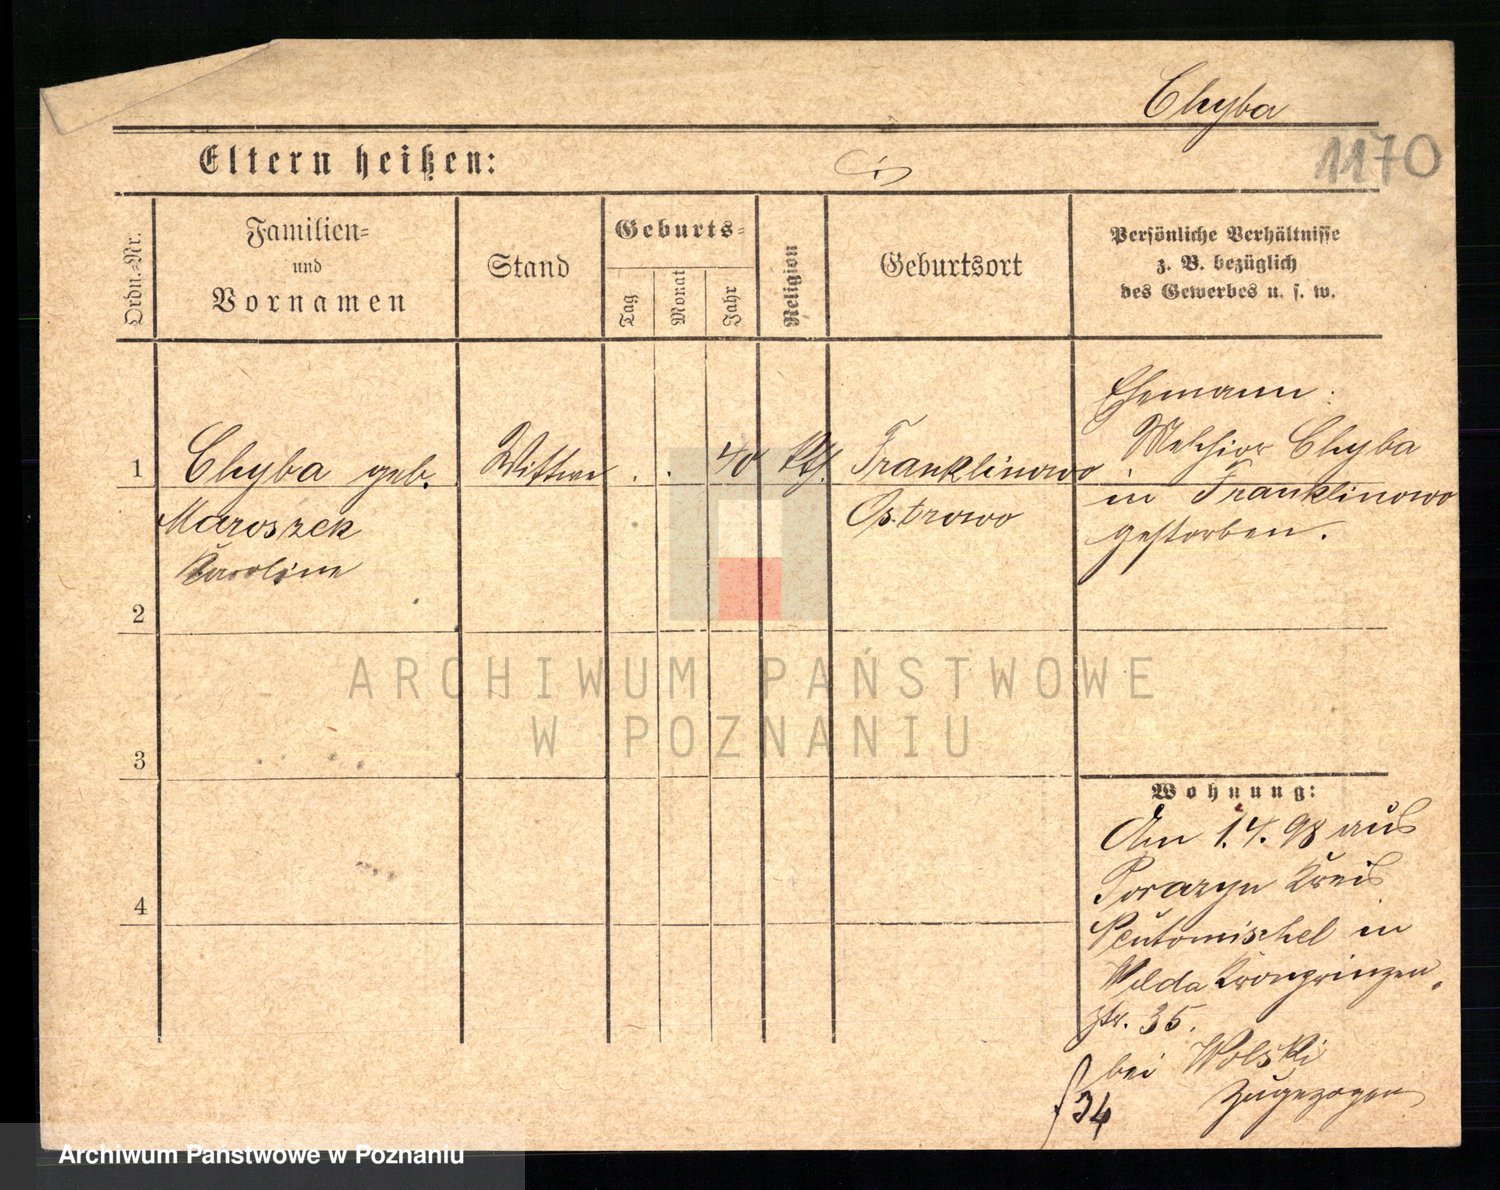 Chyba
1170
Eltern heißen:
Ordn.-Nr.
Familien-
und
Vornamen
Stand
Geburts-
Tag
Monat
Jahr
Religion
Geburtsort
Persönliche Verhältnisse
z. B. bezüglich
des Gewerbes u. s. w.
1
Chyba geb.
Maroszek
Karoline
Wittwe
40
Franklinowo
Ostrowo
Ehemann:
Melchior Chyba
in Franklinowo
gestorben.
2
3
4
Wohnung:
Am 1.4.98 aus
Porazyn Kreis
Neutomischel in
Wilda Kronprinzen
str. 35.
bei Wolski
zugezogen
34
ARCHIWUM PAŃSTWOWE
W POZNANIU
Archiwum Państwowe w Poznaniu